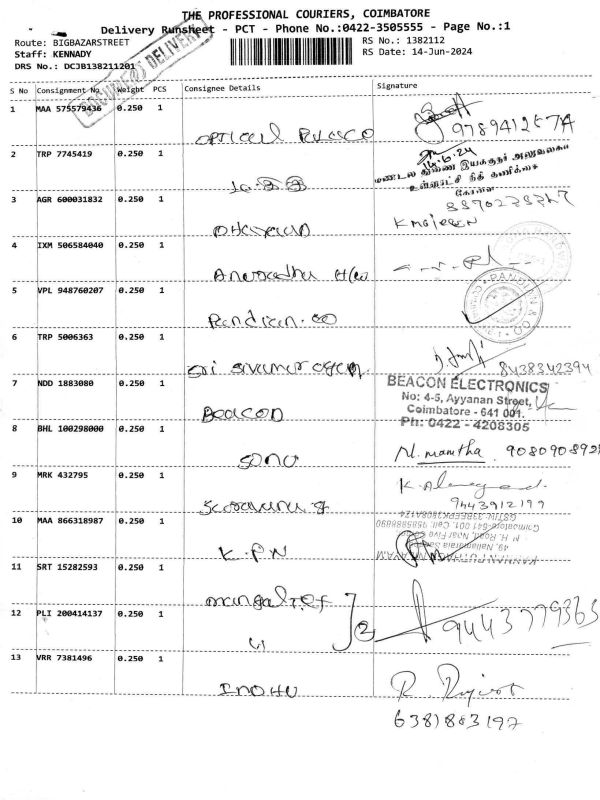 THE PROFESSIONAL COURIERS, COIMBATORE
Delivery Runsheet - PCT - Phone No.:0422-3505555 - Page No.:1
Route: BIGBAZARSTREET
RS No.: 1382112
Staff: KENNADY
RS Date: 14-Jun-2024
DRS No.: DCJB138211201
DOCUMENT DELIVERY
S No Consignment No Weight PCS Consignee Details Signature
1 MAA 575579436 0.250 1
OPTICAL PALACE
2 TRP 7745419 0.250 1
14.6.24
மண்டல துணை இயக்குநர் அலுவலகம்
உள்ளாட்சி நிதி தணிக்கை
கோவை
3 AGR 600031832 0.250 1
4 IXM 506584040 0.250 1
Anuradha
5 VPL 948760207 0.250 1
Pandian. co
PANDIAN & CO
6 TRP 5006363 0.250 1
Sri Sivamurugan
8438342394
7 NDD 1883080 0.250 1
Beacon
BEACON ELECTRONICS
No: 4-5, Ayyanan Street,
Coimbatore - 641 001.
Ph: 0422 - 4208305
8 BHL 100298000 0.250 1
SONU
N. mamtha 908090892
9 MRK 432795 0.250 1
9443912199
10 MAA 866318987 0.250 1
K.PN
11 SRT 15282593 0.250 1
mangal
12 PLI 200414137 0.250 1
2
9443779363
13 VRR 7381496 0.250 1
INDHU
6381883197